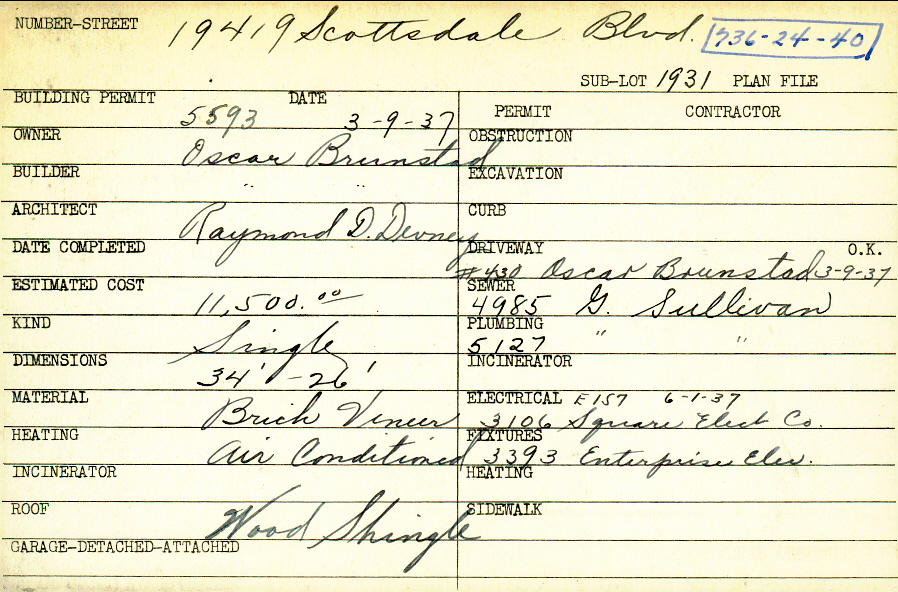 NUMBER-STREET 19419 Scottsdale Blvd. 736-24-40
SUB-LOT 1931 PLAN FILE
BUILDING PERMIT 5593 DATE 3-9-37
PERMIT CONTRACTOR
OWNER Oscar Brunstad
OBSTRUCTION
BUILDER " "
EXCAVATION
ARCHITECT Raymond D. Devney
CURB
DATE COMPLETED
DRIVEWAY O.K.
#430 Oscar Brunstad 3-9-37
ESTIMATED COST 11,500.00
SEWER
4985 G. Sullivan
KIND Single
PLUMBING " "
5127
DIMENSIONS 34' - 26'
INCINERATOR
MATERIAL Brick Veneer
ELECTRICAL E157 6-1-37
3106 Square Elect Co.
HEATING Air Conditioned
FIXTURES
3393 Enterprise Elec.
INCINERATOR
HEATING
ROOF Wood Shingle
SIDEWALK
GARAGE-DETACHED-ATTACHED